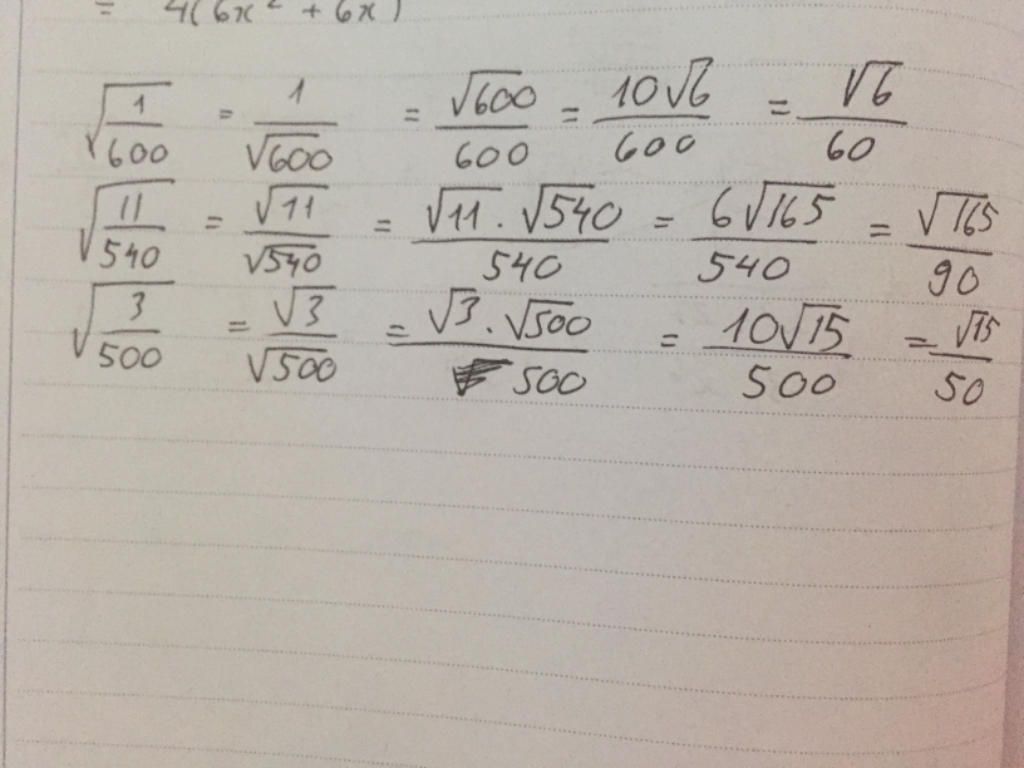 = 4(6x² + 6x)
√(1/600) = 1/√600 = √600/600 = 10√6/600 = √6/60
√(11/540) = √11/√540 = √11 · √540/540 = 6√165/540 = √165/90
√(3/500) = √3/√500 = √3 · √500/500 = 10√15/500 = √15/50